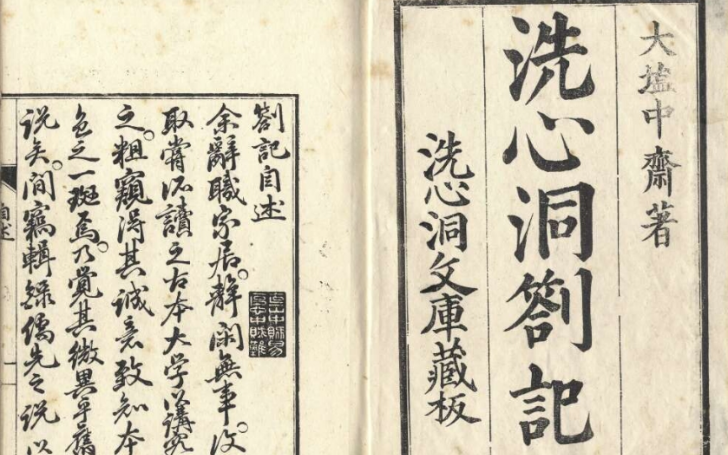 大塩中齋著
洗心洞劄記
洗心洞文庫藏板
劄記自述
余辭職家居。靜閑無事。復
取嘗所讀之古本大學以講究
之。粗窺得其誠意致知本
色之一斑焉。乃覺其微異乎舊
説矣。間竊輯録儒先之説以
自述